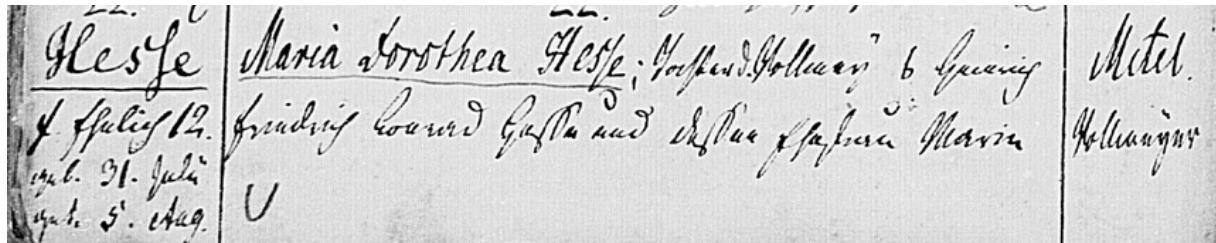 Hesse
f. Ehelich 12.
geb. 31. July
get. 5. Aug.
Maria Dorothea Hesse; Tochter d. Vollmey b Heinrich
Friedrich Conrad Hesse und dessen Ehefrau Marie
Metel.
Vollmeyer